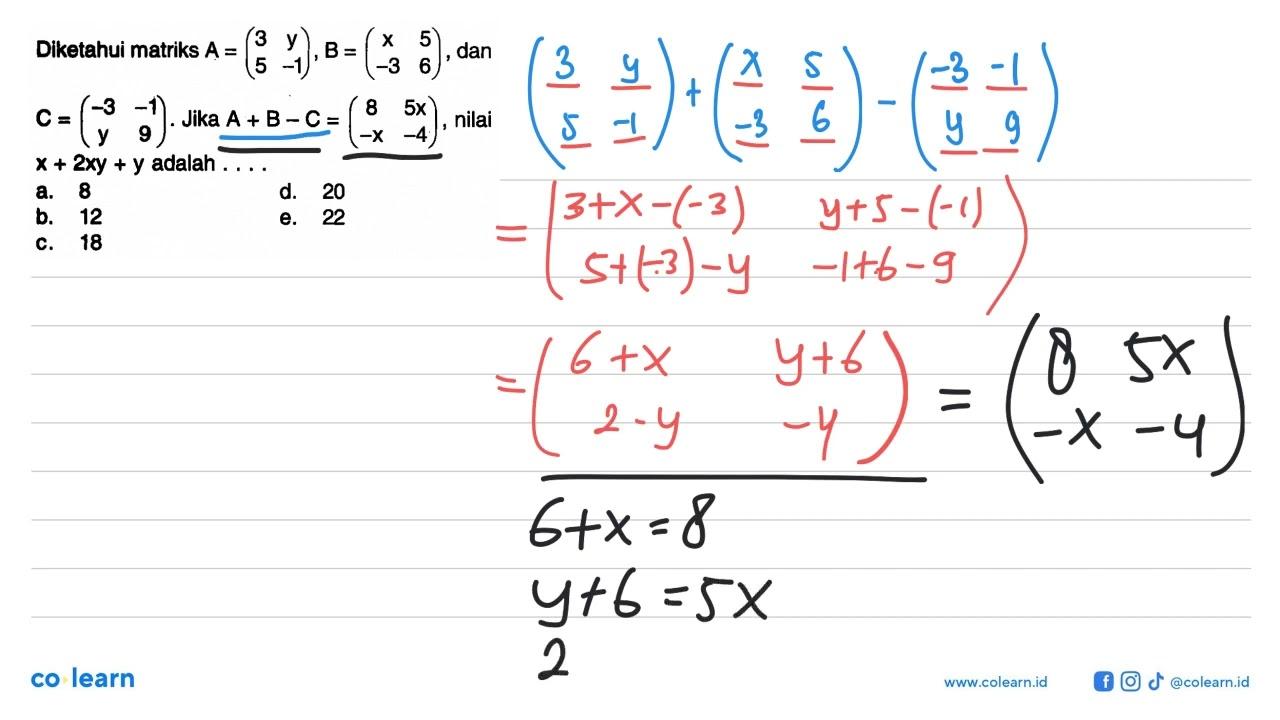 Diketahui matriks A = (3 y
5 -1), B = (x 5
-3 6), dan
C = (-3 -1
y 9). Jika A + B - C = (8 5x
-x -4), nilai
x + 2xy + y adalah . . . .
a. 8 d. 20
b. 12 e. 22
c. 18
(3 y
5 -1) + (x 5
-3 6) - (-3 -1
y 9)
= (3+x-(-3) y+5-(-1)
5+(-3)-y -1+6-9)
= (6+x y+6
2-y -4) = (8 5x
-x -4)
6+x=8
y+6=5x
2
co learn
www.colearn.id @colearn.id